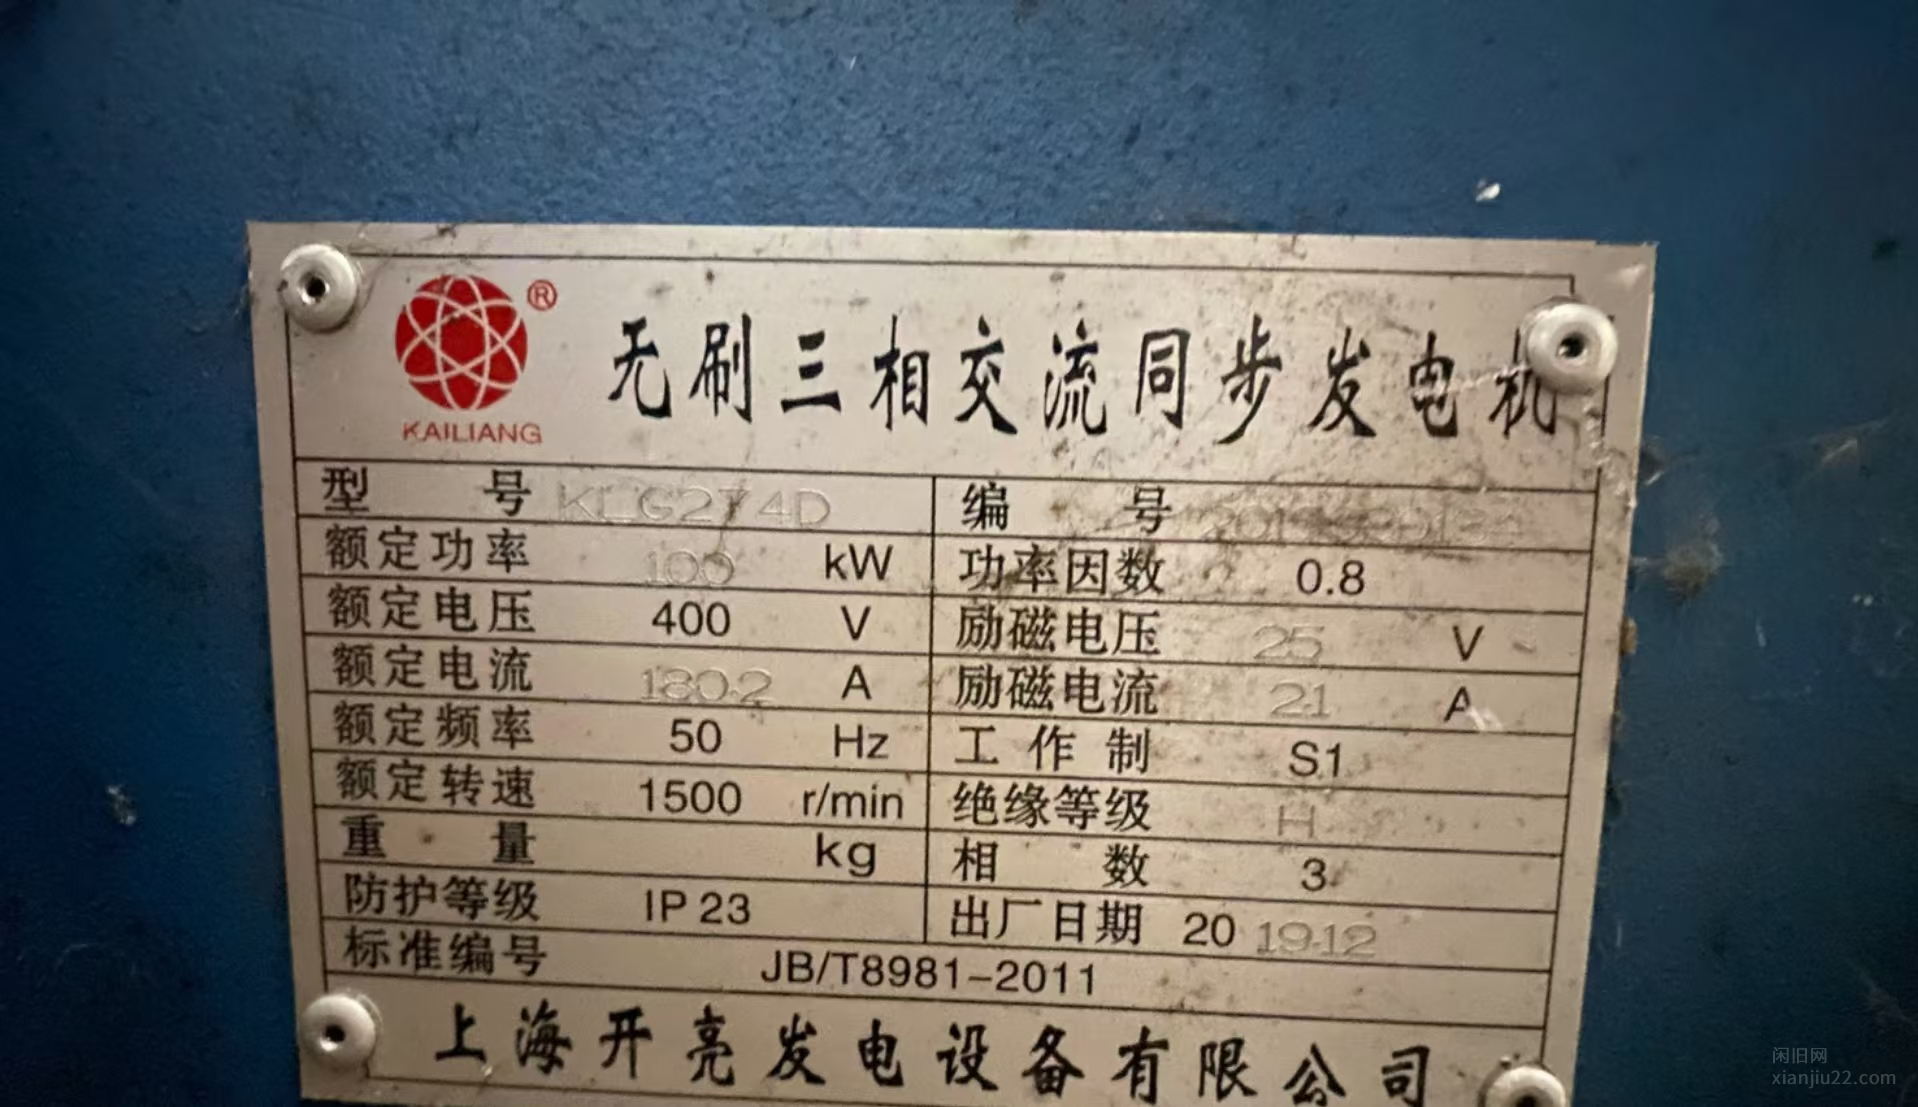 ®
KAILIANG
无刷三相交流同步发电机
型号 KLG274D 编号
额定功率 100 kW 功率因数 0.8
额定电压 400 V 励磁电压 25 V
额定电流 180.2 A 励磁电流 21 A
额定频率 50 Hz 工作制 S1
额定转速 1500 r/min 绝缘等级 H
重量 kg 相数 3
防护等级 IP 23 出厂日期 20 19.12
标准编号 JB/T8981-2011
上海开亮发电设备有限公司
闲旧网
xianjiu22.com